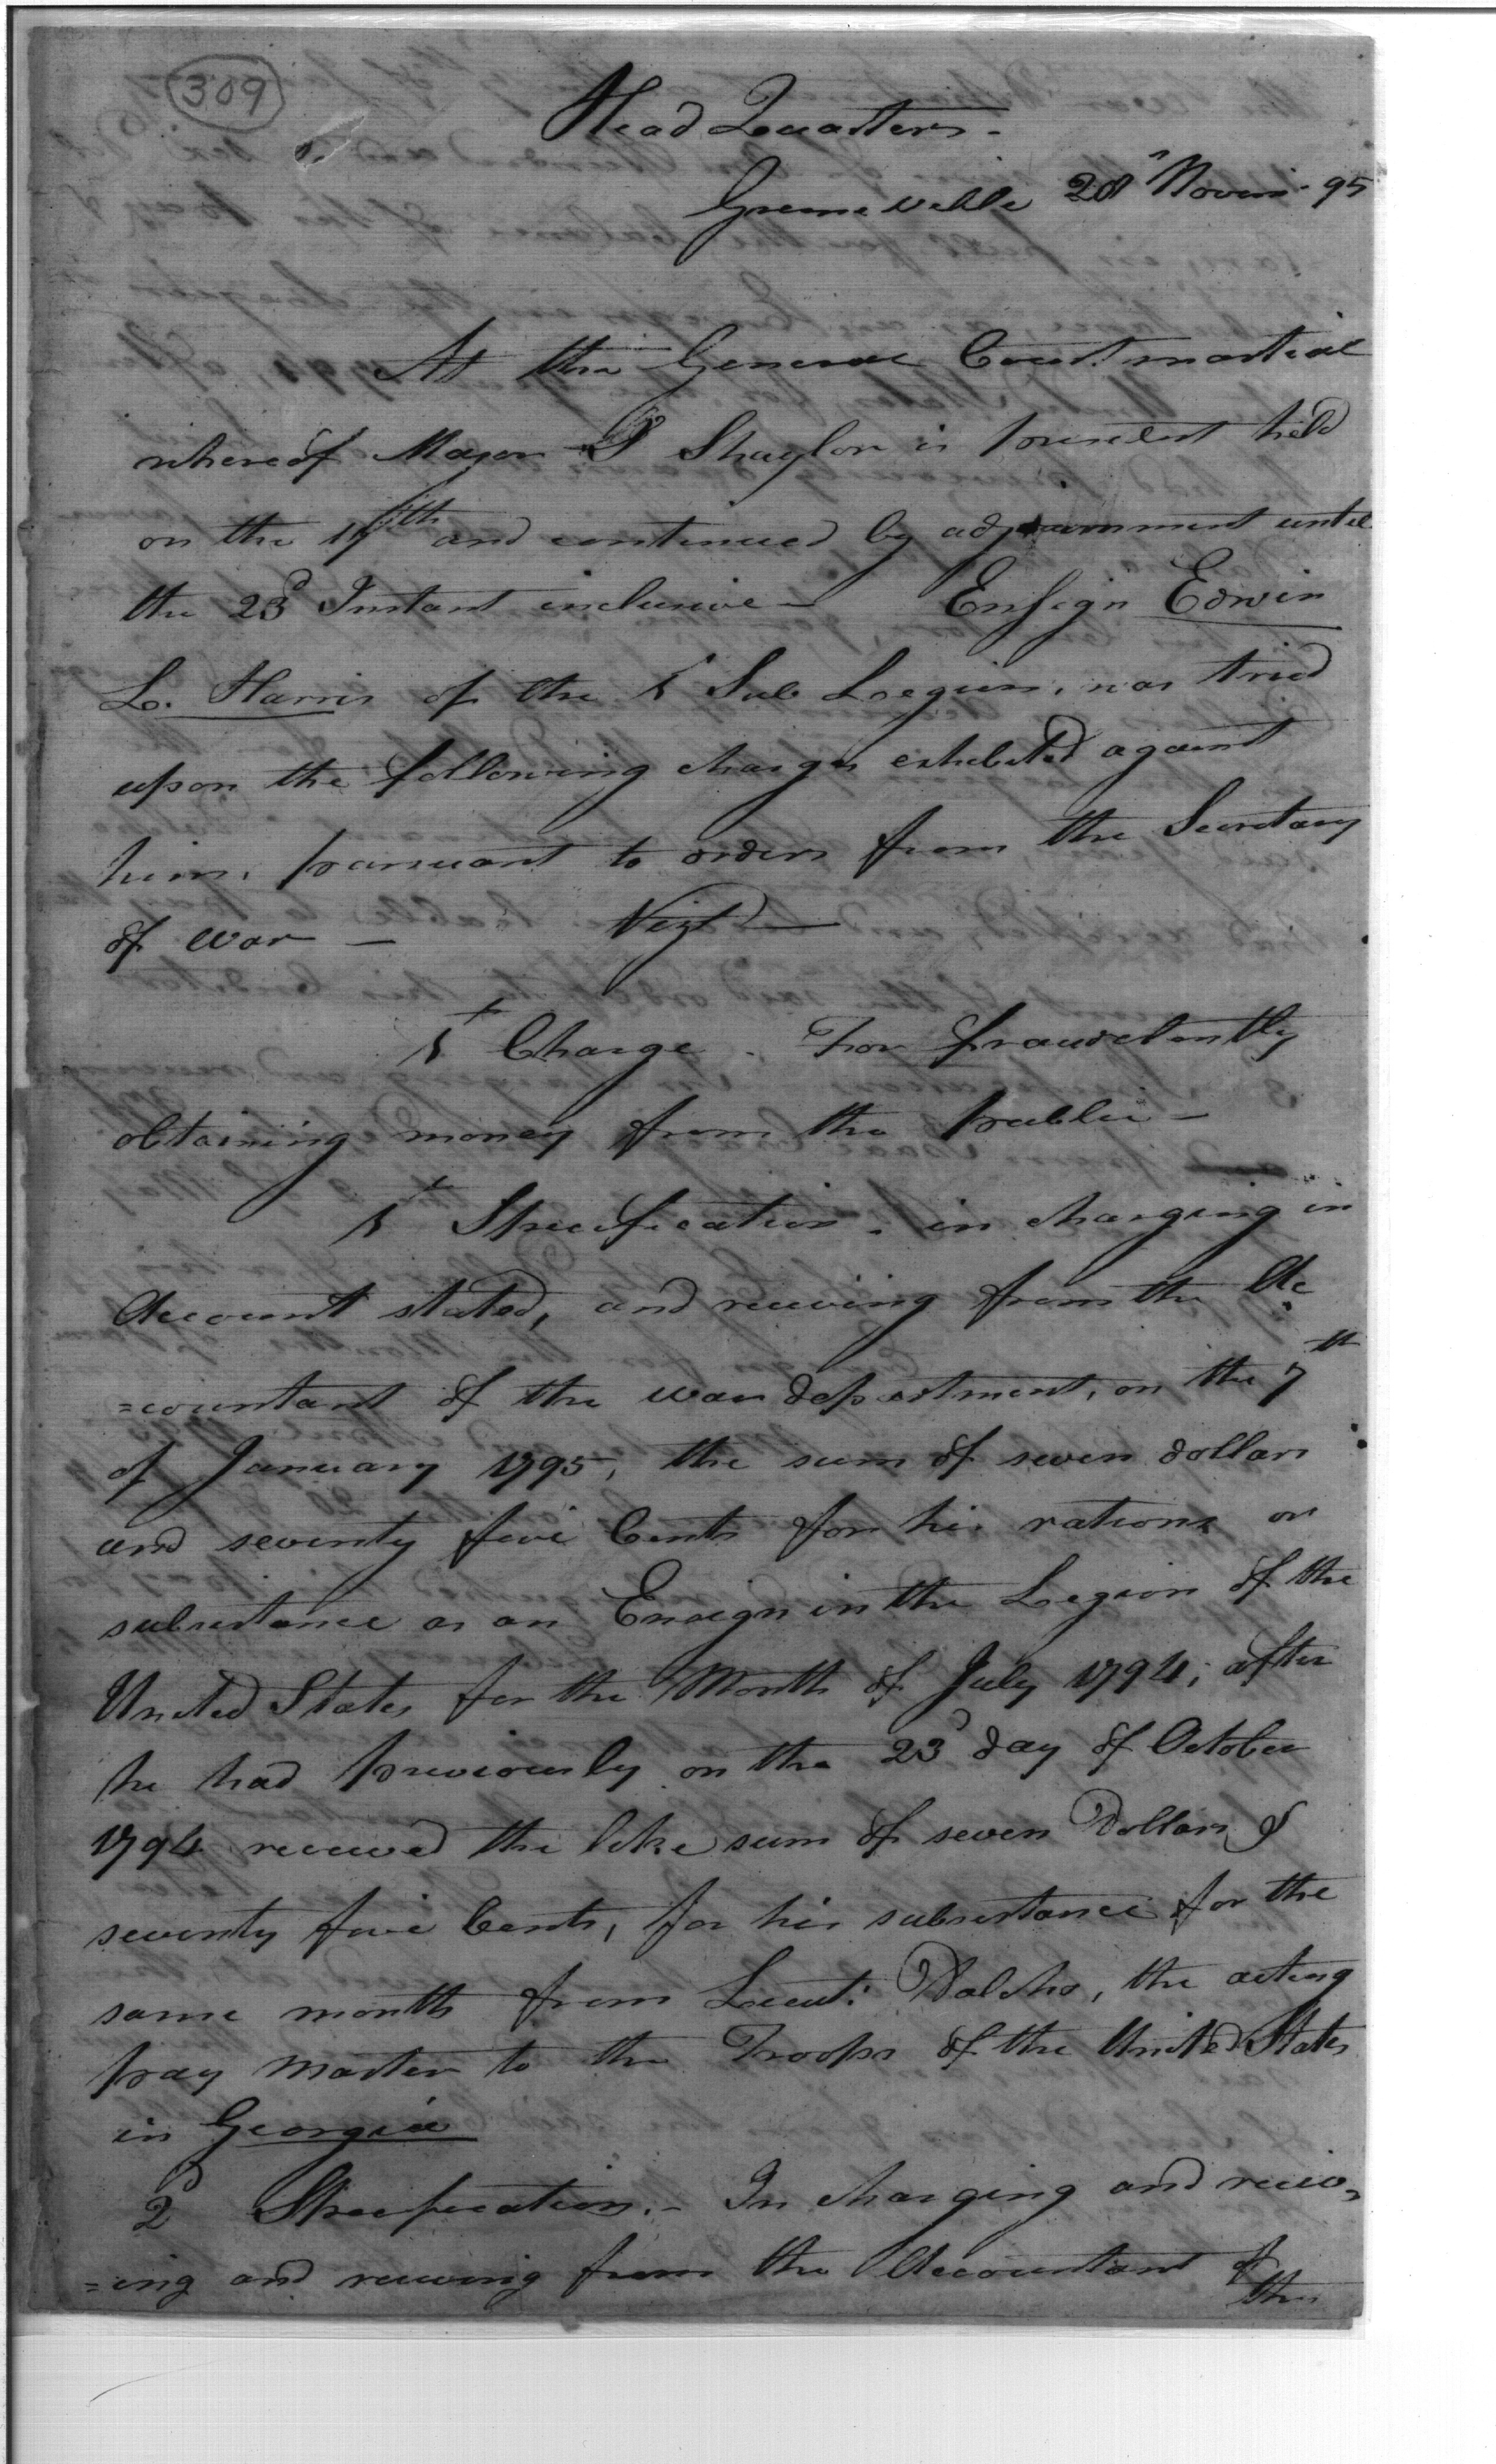 309
Head Quarters -
Greeneville 28th Novem. 95
At the General Court martial
whereof Major J Shaylor is president held
on the 19th and continued by adjournment until
the 23d Instant inclusive - Ensign Edwin
L. Harris of the 1 Sub Legion, was tried
upon the following charges exhibited against
him, pursuant to orders from the Secretary
of war - Vizt -
1st Charge. For fraudelently
obtaining money from the public -
1st Specification. in charging in
Account stated, and receiving from the Ac
=countant of the war department, on the 7th
of January 1795, the sum of seven dollars
and seventy five Cents for his rations or
subsistance as an Ensign in the Legion of the
United States for the Month of July 1794; after
he had previously on the 23d day of October
1794 received the like sum of seven Dollars &
seventy five Cents, for his subsistance for the
same month from Lieut: Dalcho, the acting
pay master to the Troops of the United States
in Georgia
2d Specification. - In charging and receiv=
=ing and receiving from the Accountant of
the